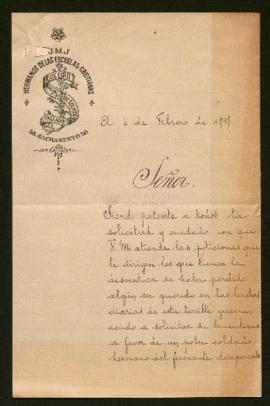 J.M.J
HERMANOS DE LAS ESCUELAS CRISTIANAS
50, SACRAMENTO, 50
El 4 de Febrero de 1917
Señor.
Siendo patente a todos la
solicitud y cuidado con que
V. M. atiende las peticiones que
le dirigen los que tienen la
desventura de haber perdido
algún ser querido en las luchas
diarias de esta terrible guerra,
acudo a solicitar su benevolencia
a favor de un pobre soldado
hermano del firmante, desaparecido